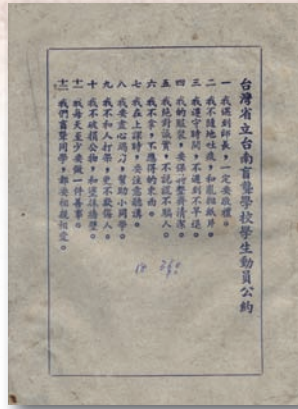 台灣省立台南盲聾學校學生動員公約
一 我遇到師長，一定要敬禮。
二 我不隨地吐痰，和亂拋紙片。
三 我遵守時間，不遲到不早退。
四 我的服裝，要保持整齊清潔。
五 我絕對誠實，不說謊不騙人。
六 我不拿，不應得的東西。
七 我在上課時，要注意聽講。
八 我要盡心竭力，幫助小同學。
九 我不和人打架，更不欺侮人。
十 我不破損公物，和塗抹牆壁。
十一 我每天至少要做一件善事。
十二 我們盲聾同學，都要相親相愛。